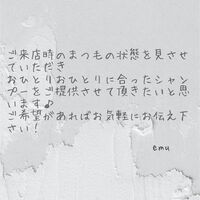 ご来店時のまつもの状態を見させ
ていただき
おひとりおひとりに合ったシャン
プーをご提供させて頂きたいと思
います♪
ご希望があればお気軽にお伝え下
さい！
emu